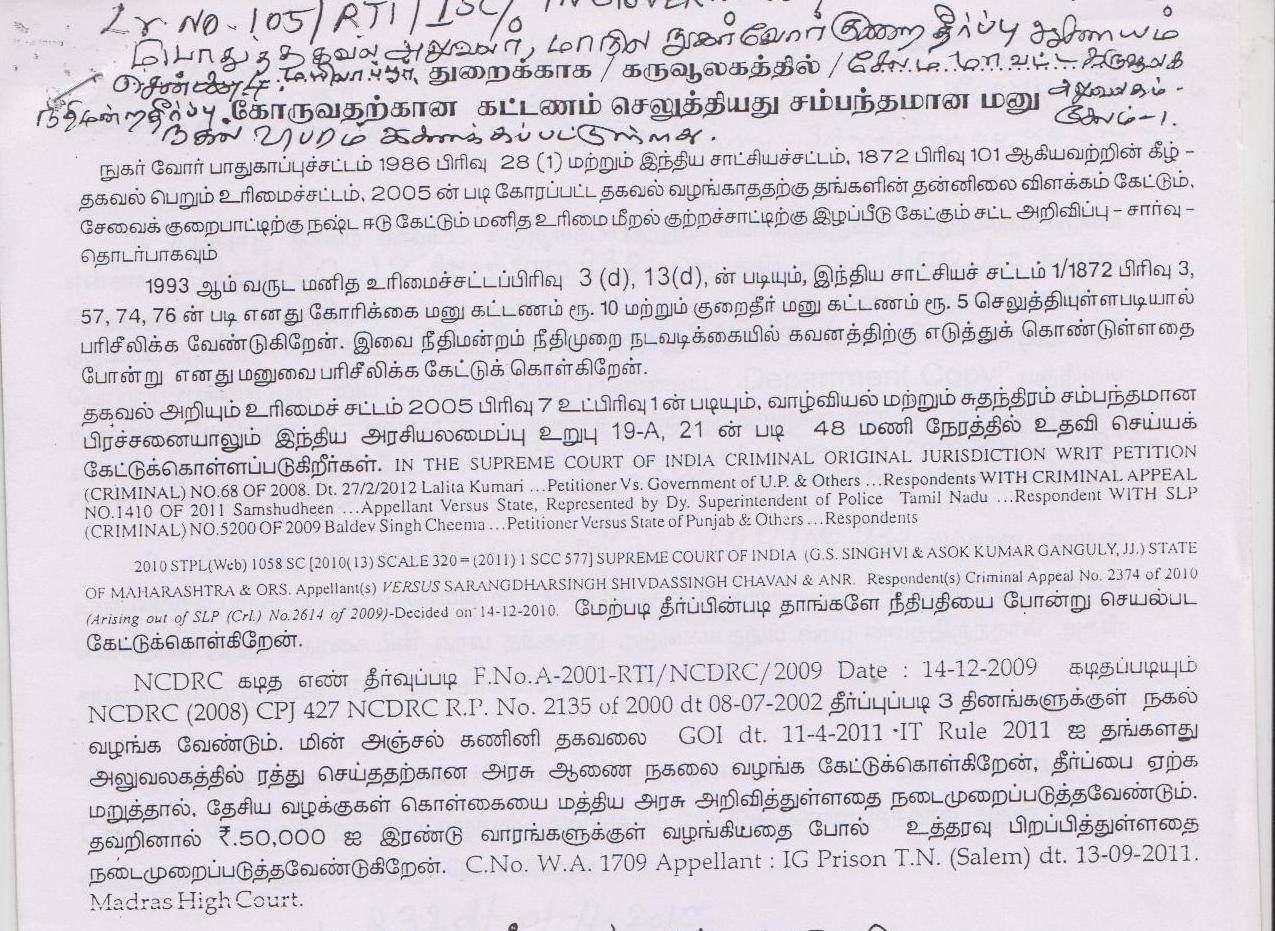 Lr. No. 105/RTI/ISC/
பொதுத்தகவல் அலுவலர், மாநில நுகர்வோர் குறைதீர்ப்பு ஆணையம்
சென்னை-4. துறைக்காக / கருவூலகத்தில் / சேலம் மாவட்ட கருவூலக
நீதிமன்றதீர்ப்பு. கோருவதற்கான கட்டணம் செலுத்தியது சம்பந்தமான மனு அலுவலகம் -
நகல் விபரம் கணக்கப்பட்டுள்ளது. சேலம்-1.
நுகர் வோர் பாதுகாப்புச்சட்டம் 1986 பிரிவு 28 (1) மற்றும் இந்திய சாட்சியச்சட்டம், 1872 பிரிவு 101 ஆகியவற்றின் கீழ் -
தகவல் பெறும் உரிமைச்சட்டம், 2005 ன் படி கோரப்பட்ட தகவல் வழங்காததற்கு தங்களின் தன்னிலை விளக்கம் கேட்டும்,
சேவைக் குறைபாட்டிற்கு நஷ்ட ஈடு கேட்டும் மனித உரிமை மீறல் குற்றச்சாட்டிற்கு இழப்பீடு கேட்கும் சட்ட அறிவிப்பு - சார்வு -
தொடர்பாகவும்
1993 ஆம் வருட மனித உரிமைச்சட்டப்பிரிவு 3 (d), 13(d), ன் படியும், இந்திய சாட்சியச் சட்டம் 1/1872 பிரிவு 3,
57, 74, 76 ன் படி எனது கோரிக்கை மனு கட்டணம் ரூ. 10 மற்றும் குறைதீர் மனு கட்டணம் ரூ. 5 செலுத்தியுள்ளபடியால்
பரிசீலிக்க வேண்டுகிறேன். இவை நீதிமன்றம் நீதிமுறை நடவடிக்கையில் கவனத்திற்கு எடுத்துக் கொண்டுள்ளதை
போன்று எனது மனுவை பரிசீலிக்க கேட்டுக் கொள்கிறேன்.
தகவல் அறியும் உரிமைச் சட்டம் 2005 பிரிவு 7 உட்பிரிவு 1ன் படியும், வாழ்வியல் மற்றும் சுதந்திரம் சம்பந்தமான
பிரச்சனையாலும் இந்திய அரசியலமைப்பு உறுபு 19-A, 21 ன் படி 48 மணி நேரத்தில் உதவி செய்யக்
கேட்டுக்கொள்ளப்படுகிறீர்கள். IN THE SUPREME COURT OF INDIA CRIMINAL ORIGINAL JURISDICTION WRIT PETITION
(CRIMINAL) NO.68 OF 2008. Dt. 27/2/2012 Lalita Kumari ...Petitioner Vs. Government of U.P. & Others ...Respondents WITH CRIMINAL APPEAL
NO.1410 OF 2011 Samshudheen ...Appellant Versus State, Represented by Dy. Superintendent of Police Tamil Nadu ...Respondent WITH SLP
(CRIMINAL) NO.5200 OF 2009 Baldev Singh Cheema ...Petitioner Versus State of Punjab & Others ...Respondents
2010 STPL(Web) 1058 SC [2010(13) SCALE 320 = (2011) 1 SCC 577] SUPREME COURT OF INDIA (G.S. SINGHVI & ASOK KUMAR GANGULY, JJ.) STATE
OF MAHARASHTRA & ORS. Appellant(s) VERSUS SARANGDHARSINGH SHIVDASSINGH CHAVAN & ANR. Respondent(s) Criminal Appeal No. 2374 of 2010
(Arising out of SLP (Crl.) No.2614 of 2009)-Decided on 14-12-2010. மேற்படி தீர்ப்பின்படி தாங்களே நீதிபதியை போன்று செயல்பட
கேட்டுக்கொள்கிறேன்.
NCDRC கடித எண் தீர்வுப்படி F.No.A-2001-RTI/NCDRC/2009 Date : 14-12-2009 கடிதப்படியும்
NCDRC (2008) CPJ 427 NCDRC R.P. No. 2135 of 2000 dt 08-07-2002 தீர்ப்புப்படி 3 தினங்களுக்குள் நகல்
வழங்க வேண்டும். மின் அஞ்சல் கணினி தகவலை GOI dt. 11-4-2011 IT Rule 2011 ஐ தங்களது
அலுவலகத்தில் ரத்து செய்ததற்கான அரசு ஆணை நகலை வழங்க கேட்டுக்கொள்கிறேன், தீர்ப்பை ஏற்க
மறுத்தால், தேசிய வழக்குகள் கொள்கையை மத்திய அரசு அறிவித்துள்ளதை நடைமுறைப்படுத்தவேண்டும்.
தவறினால் ₹.50,000 ஐ இரண்டு வாரங்களுக்குள் வழங்கியதை போல் உத்தரவு பிறப்பித்துள்ளதை
நடைமுறைப்படுத்தவேண்டுகிறேன். C.No. W.A. 1709 Appellant : IG Prison T.N. (Salem) dt. 13-09-2011.
Madras High Court.